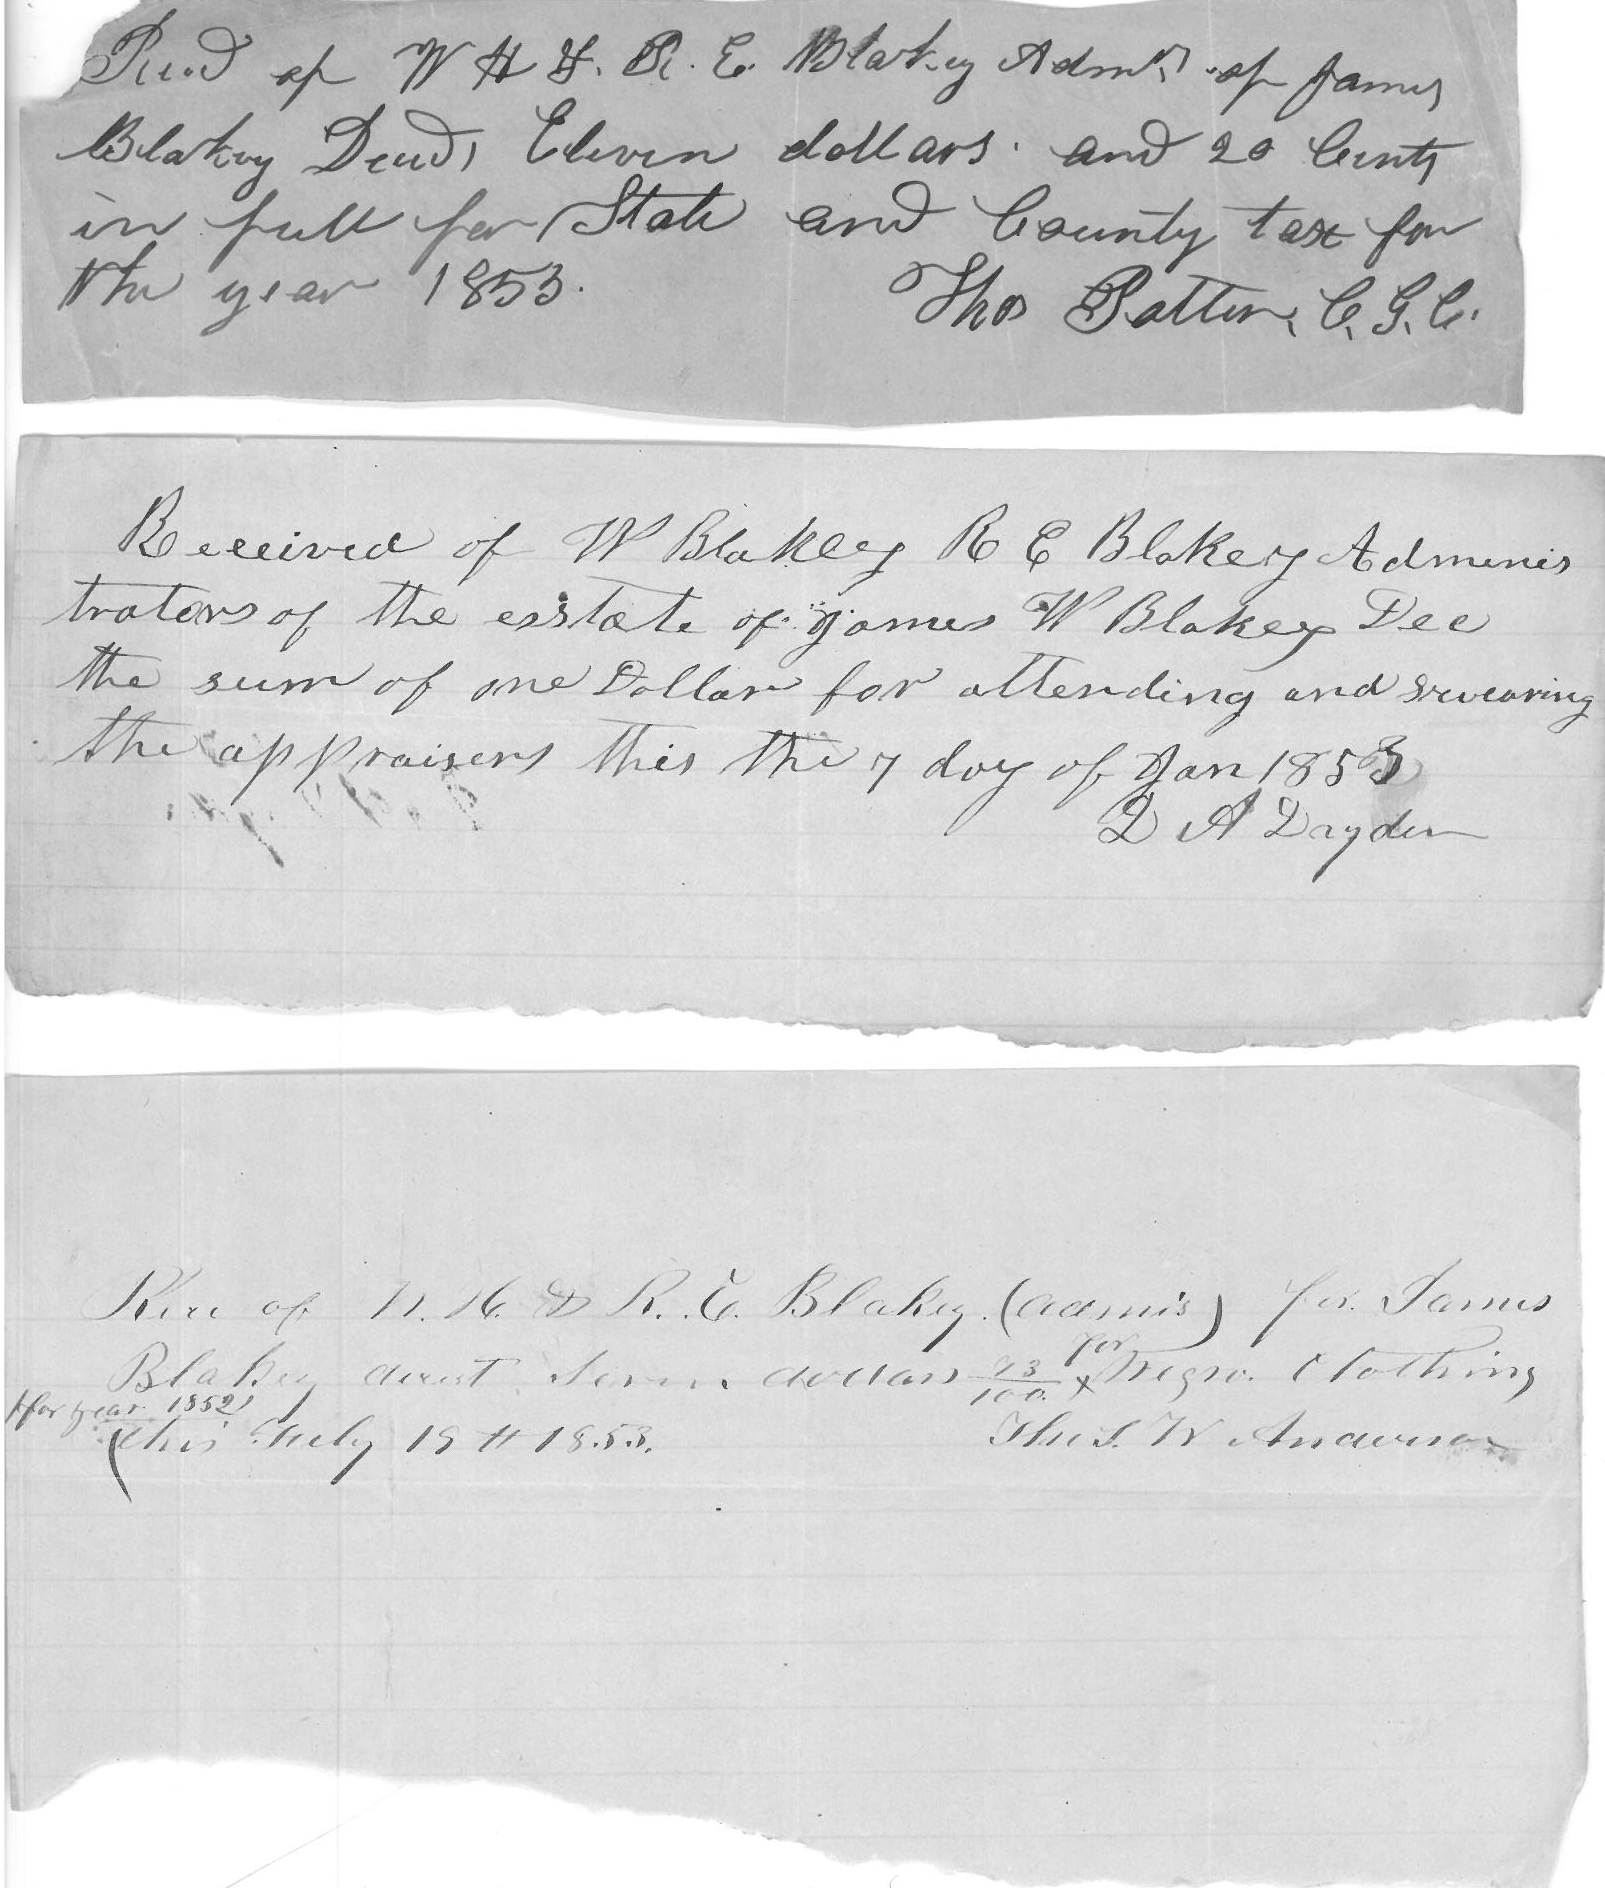 Recd of W H & R. E. Blakey Admrs of James
Blakey Decd, Eleven dollars and 20 Cents
in full for State and County tax for
the year 1853.
Thos Patten, C. G. C.
Received of W Blakley R E Blakey Adminis
trators of the esstate of James W Blakey Dec
the sum of one Dollar for attending and swearing
the appraisers this the 7 day of Jan 1853
D A Dryden
Rec of W. H. & R. E. Blakey (admis) for James
Blakey decst Seven dollars 73/100 x for Negro Clothing
(for year 1852)
this July 19th 1853.
Thos. W Anderson